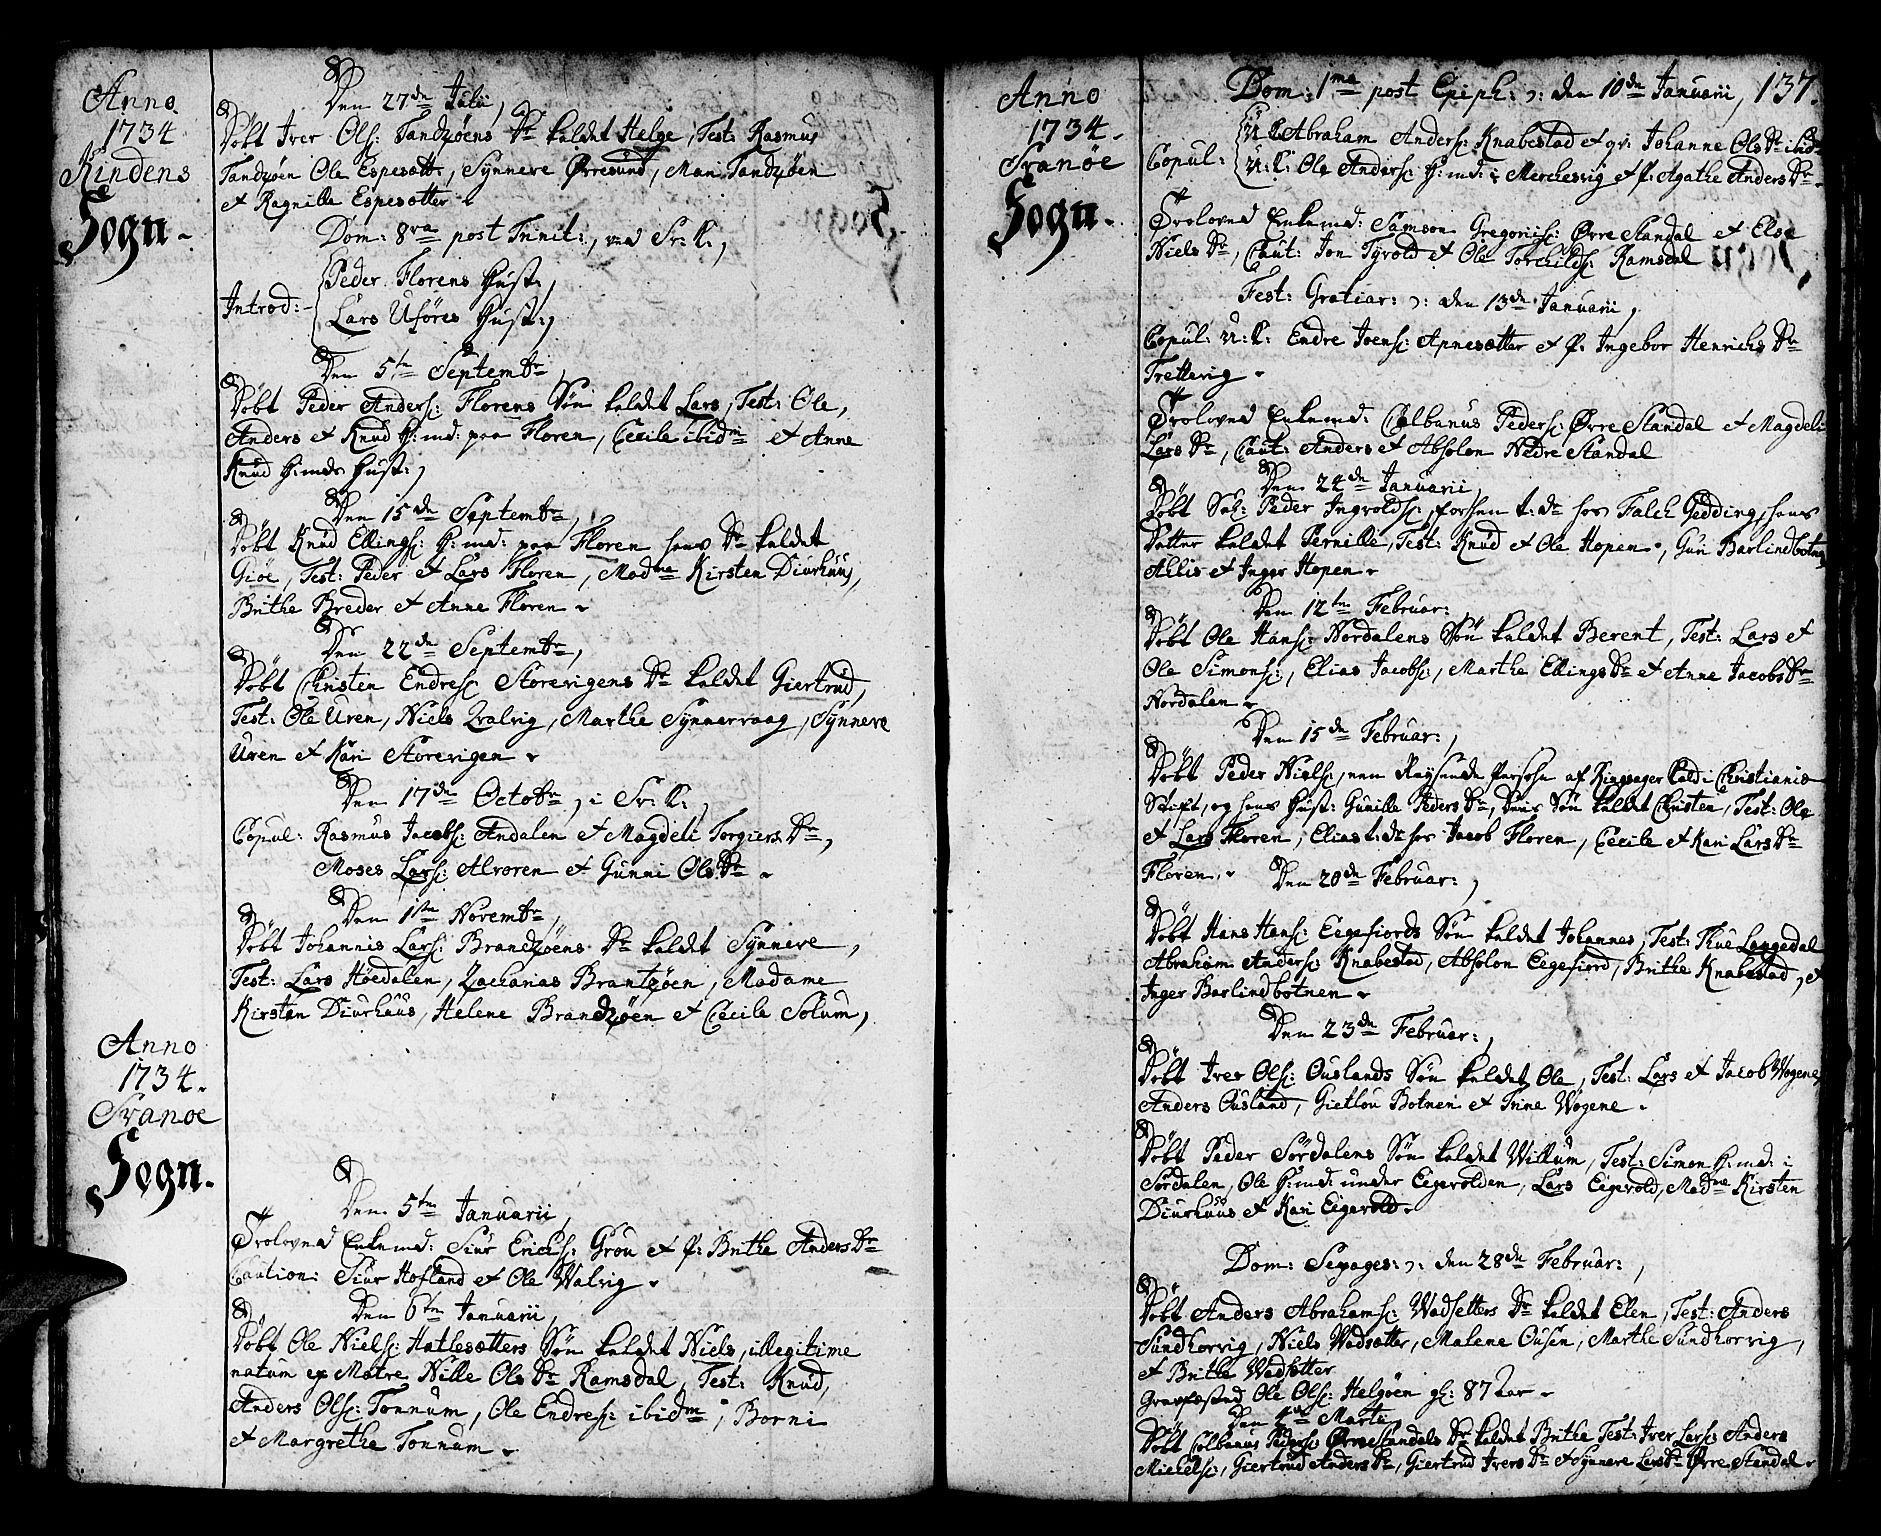 Anno
1734
Kindens
Sogn.
Den 27de Julii,
Døbt Iver Ols: Tandzøens Dr kaldet Helge, Test: Rasmus
Tandzøen Ole Espesætter, Synneve Ørresund, Mari Tandzøen
et Ragnille Espesætter.
Dom: 8va post Trinit:, ved Sv: K:,
Introd:
Peder Florens Hust:,
Lars Uføres Hust:,
Den 5te Septembr,
Døbt Peder Anders: Florens Søn kaldet Lars, Test: Ole,
Anders et Knud H:md: paa Floren, Cecile ibidm et Anne
Knud H:mds Hust:,
Den 15de Septembr,
Døbt Knud Ellings: H:md: paa Floren hans Dr kaldet
Giøe, Test: Peder et Lars Floren, Madme Kirsten Diurhuus,
Brithe Breder et Anne Floren.
Den 22de Septembr,
Døbt Christen Endres: Storevigens Dr kaldet Giertrud,
Test: Ole Uren, Niels Qvalvig, Marthe Synnervaag, Synneve
Uren et Kari Storevigen.
Den 17de Octobr, i Sv: K:,
Copul: Rasmus Jacobs: Andalen et Magdeli Torgiers Dr,
Moses Lars: Alvoren et Gunni Ols Dr.
Den 1ste Novembr,
Døbt Johannis Lars: Brandzøens Dr kaldet Synneve,
Test: Lars Høedalen, Zacharias Brantzøen, Madame
Kirsten Diurhuus, Helene Brandzøen et Cecile Solum,
Anno
1734.
Svanøe
Sogn.
Den 5te Januarii,
Troloved Enkemd: Siur Erichs: Grou et P: Brithe Anders Dr
Caution: Siur Hofland et Ole Walvig.
Den 6te Januarii,
Døbt Ole Niels: Hatlesætters Søn kaldet Niels, illegitime
natum ex Matre Nille Ols Dr Ramsdal, Test: Knud,
Anders Ols: Tonnum, Ole Endres: ibidm, Borni
et Margrethe Tonnum.
Anno
1734.
Svanøe
Sogn.
137.
Dom: 1ma post Epiph: ɔ: den 10de Januarii,
Copul:
U: K: Abraham Anders: Knabestad et qv: Johanne Ols Dr ibidm
U: K: Ole Anders: H:md: i Merchesvig et P: Agathe Anders Dr.
Troloved Enkemd: Samson Gregoris: Ørre Standal et Else
Niels Dr, Caut: Jon Tyvold et Ole Torchilds: Ramsdal
Fest: Gratiar: ɔ: den 13de Januarii,
Copul: U: K: Endre Joens: Apnesætter et P: Ingebor Henrichs Dr
Trettevig.
Troloved Enkemd: Colbanus Peders: Ørre Standal et Magdeli
Lars Dr, Caut: Anders et Absolon Nedre Standal
Den 24de Januarii,
Døbt Sal: Peder Ingvolds:, forhen t:dr hos Falch Gedding, hans
Datter kaldet Pernille, Test: Knud et Ole Hopen, Gun Barlindbotne,
Ahlis et Inger Hopen.
Den 12te Februar:,
Døbt Ole Hans: Nordalens Søn kaldet Berent, Test: Lars et
Ole Simons:, Elias Jacobs:, Marthe Ellings Dr et Anne Jacobs Dr
Nordalen.
Den 15de Februar:,
Døbt Peder Niels:, een Reysende Person af Ringsager Gield i Christianiæ
Stift, og hans Hust: Gunille Peders Dr, deris Søn kaldet Christen, Test: Ole
et Lars Floren, Elias t:dr hos Jacob Floren, Cecile et Kari Lars Dr
Floren.
Den 20de Februar:,
Døbt Hans Hans: Eegefiords Søn kaldet Johannes, Test: Thue Langedal
Abraham Anders: Knabestad, Absolon Eegefiord, Brithe Knabestad, et
Inger Barlindbotnen.
Den 23de Februar:,
Døbt Iver Ols: Ouslands Søn kaldet Ole, Test: Lars et Jacob Wogene,
Anders Ousland, Gietlou Botnen et Trine Wogene.
Døbt Peder Sørdalens Søn kaldet Willum, Test: Simon H:md: i
Sørdalen, Ole H:md: under Eegevolden, Lars Eigevold, Madme Kirsten
Diurhuus et Kari Eigevold.
Dom: Sexages: ɔ: den 28de Februar:,
Døbt Anders Abrahams: Wadsetters Dr kaldet Elen, Test: Anders
Sundhorvig, Niels Wadsætter, Malene Ousen, Marthe Sundhorvig,
et Brithe Wadsætter
Græsfæsted Ole Ols: Helgøen gl: 87 Aar.
Den Martii,
Døbt Colbanus Peders: Ørre Standals Dr kaldet Brithe Test: Iver Lars: Anders
Michels:, Giertrud Anders Dr, Giertrud Ivers Dr et Synneve Lars Dr Ørre Standal.